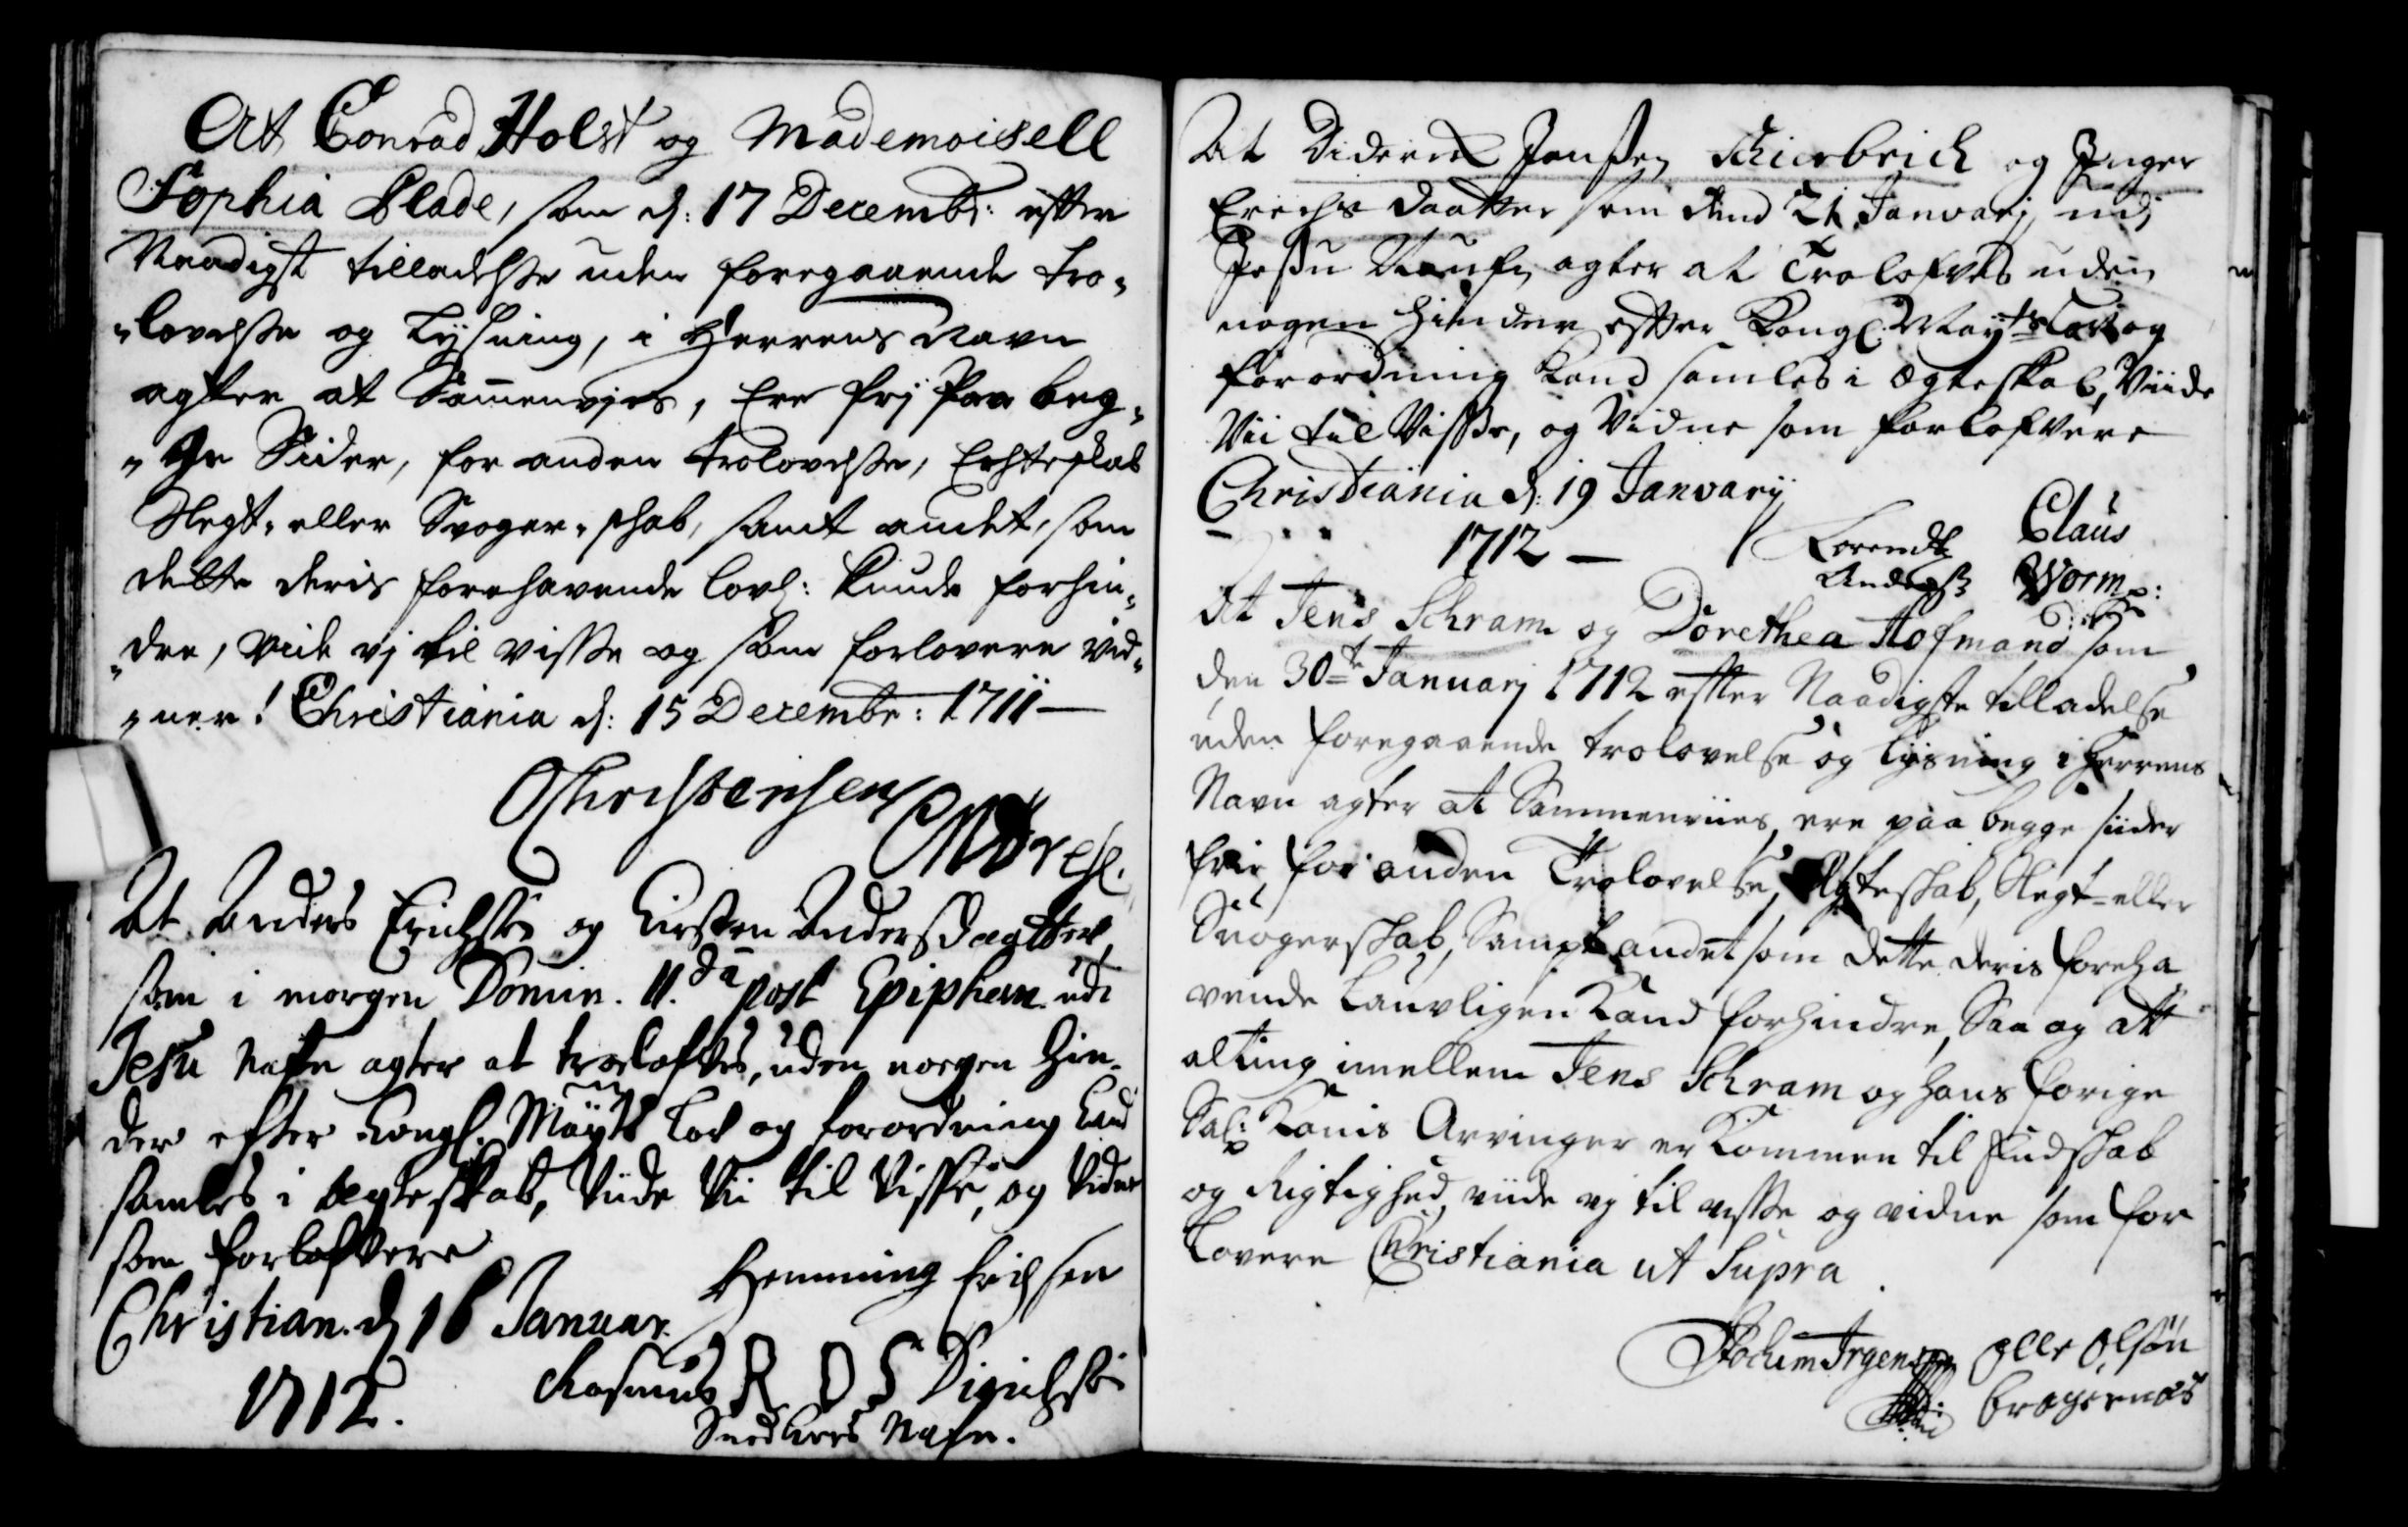 At Conrad Holst og Mademoisell
Sophia Blade, som d: 17 Decembr: efter
Naadigst tilladelsse uden foregaaende tro-
-lovelsse og Lysning, i Herrens Navn
agter at Samenvjes, Ere frj paa beg-
-ge Sider, for anden trolovelsse, Echteskab
Slegt- eller Svoger-skab, samt andet, som
dette deris forehavende lovl: kunde forhin-
-dre, vide vj til visse og som forlovere vid-
-ner! Christiania d: 15 Decembr: 1711 —
Christensen
At Anders Erichsøn og Kirsten Andersdaatter,
som i morgen Domin. II.da post Epiphan. udi
Jesu Nafn agter at trolofves, uden nogen hin-
der efter Kongl. Mayts Lov og forordning kand
samles i Ægteskab, Viide Vii til Visse, og Vidne
som forlofvere
Christian. d 16 Januar.
1712.
Henning Erichsen
Rasmus R D S
Snedkers Nafn.
At Diderich Jensen Schierbech og Inger
Erechs daatter som dend 21 Januarj udj
Jesu Naufn agter at Trolofves uden
nogen hinder efter Kongl: Mayts Lov og
forordning kand samles i Ægteskab, Viide
Vii til Visse, og Vidne som forlofvere
Christiania d: 19 Januarij
1712 —
Lorendtz
Anderss
Claus
Worm
At Jens Schram og Dorethea Hofmand som
den 30te Januarj 1712 efter Naadigste tilladelse
uden foregaaende trolovelse og lysning i Herrens
Navn agter at Sammenviies, ere paa begge siider
frie for anden Trolovelse, Ægteskab, Slegt- eller
Svogerskab, Sampt andet som dette deris foreha
vende Lauvligen kand forhindre, Saa og att
alting imellem Jens Schram og hans forige
Sal: Konis Arvinger er kommen til Endskab
og Rigtighed, viide vj til visse og vidne som for
lovere Christiania ut Supra
Jochim Jrgensen
Olle Olsøn
Bragernæs